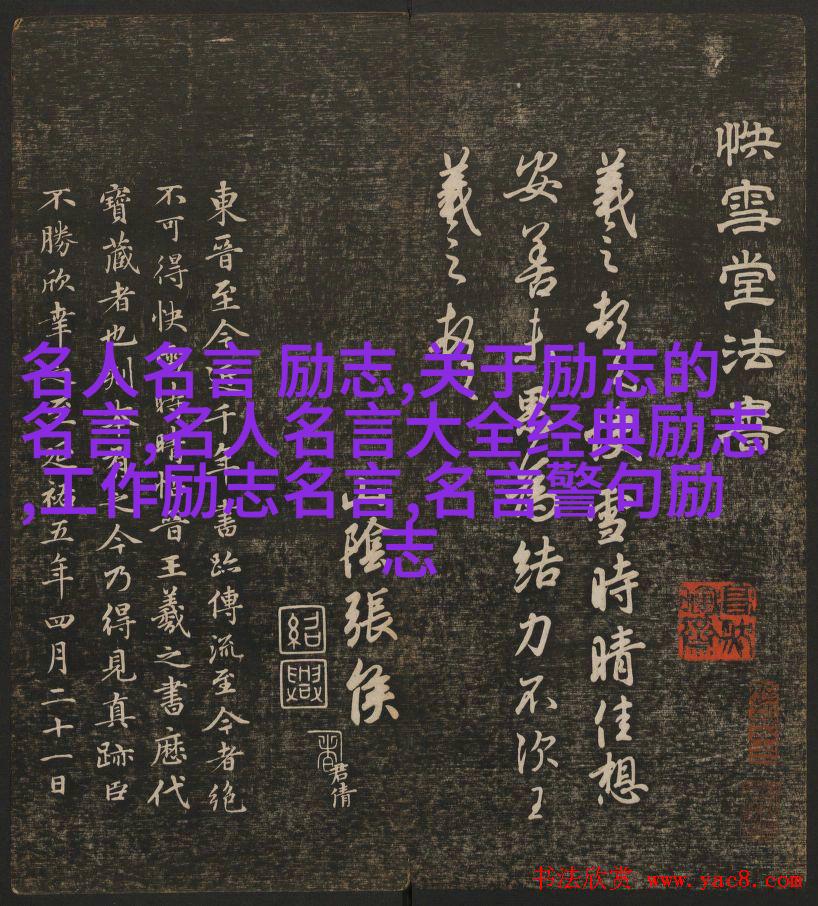 名人名言 励志,关于励志的
名言,名人名言大全经典励志
,工作励志名言,名言警句励
志
快雪堂法書
羲之頓首快雪時晴佳想
安善未果為結力不次王
羲之頓
山陰張侯
紹興
君倩
東晉至今千年書跡傳流至今者絕
不可得快雪時晴帖晉王羲之書歷代
寶藏者也刻本有之今乃得見真跡臣
不勝欣幸祐五年四月二十一日
书法欣赏 www.yac8.com